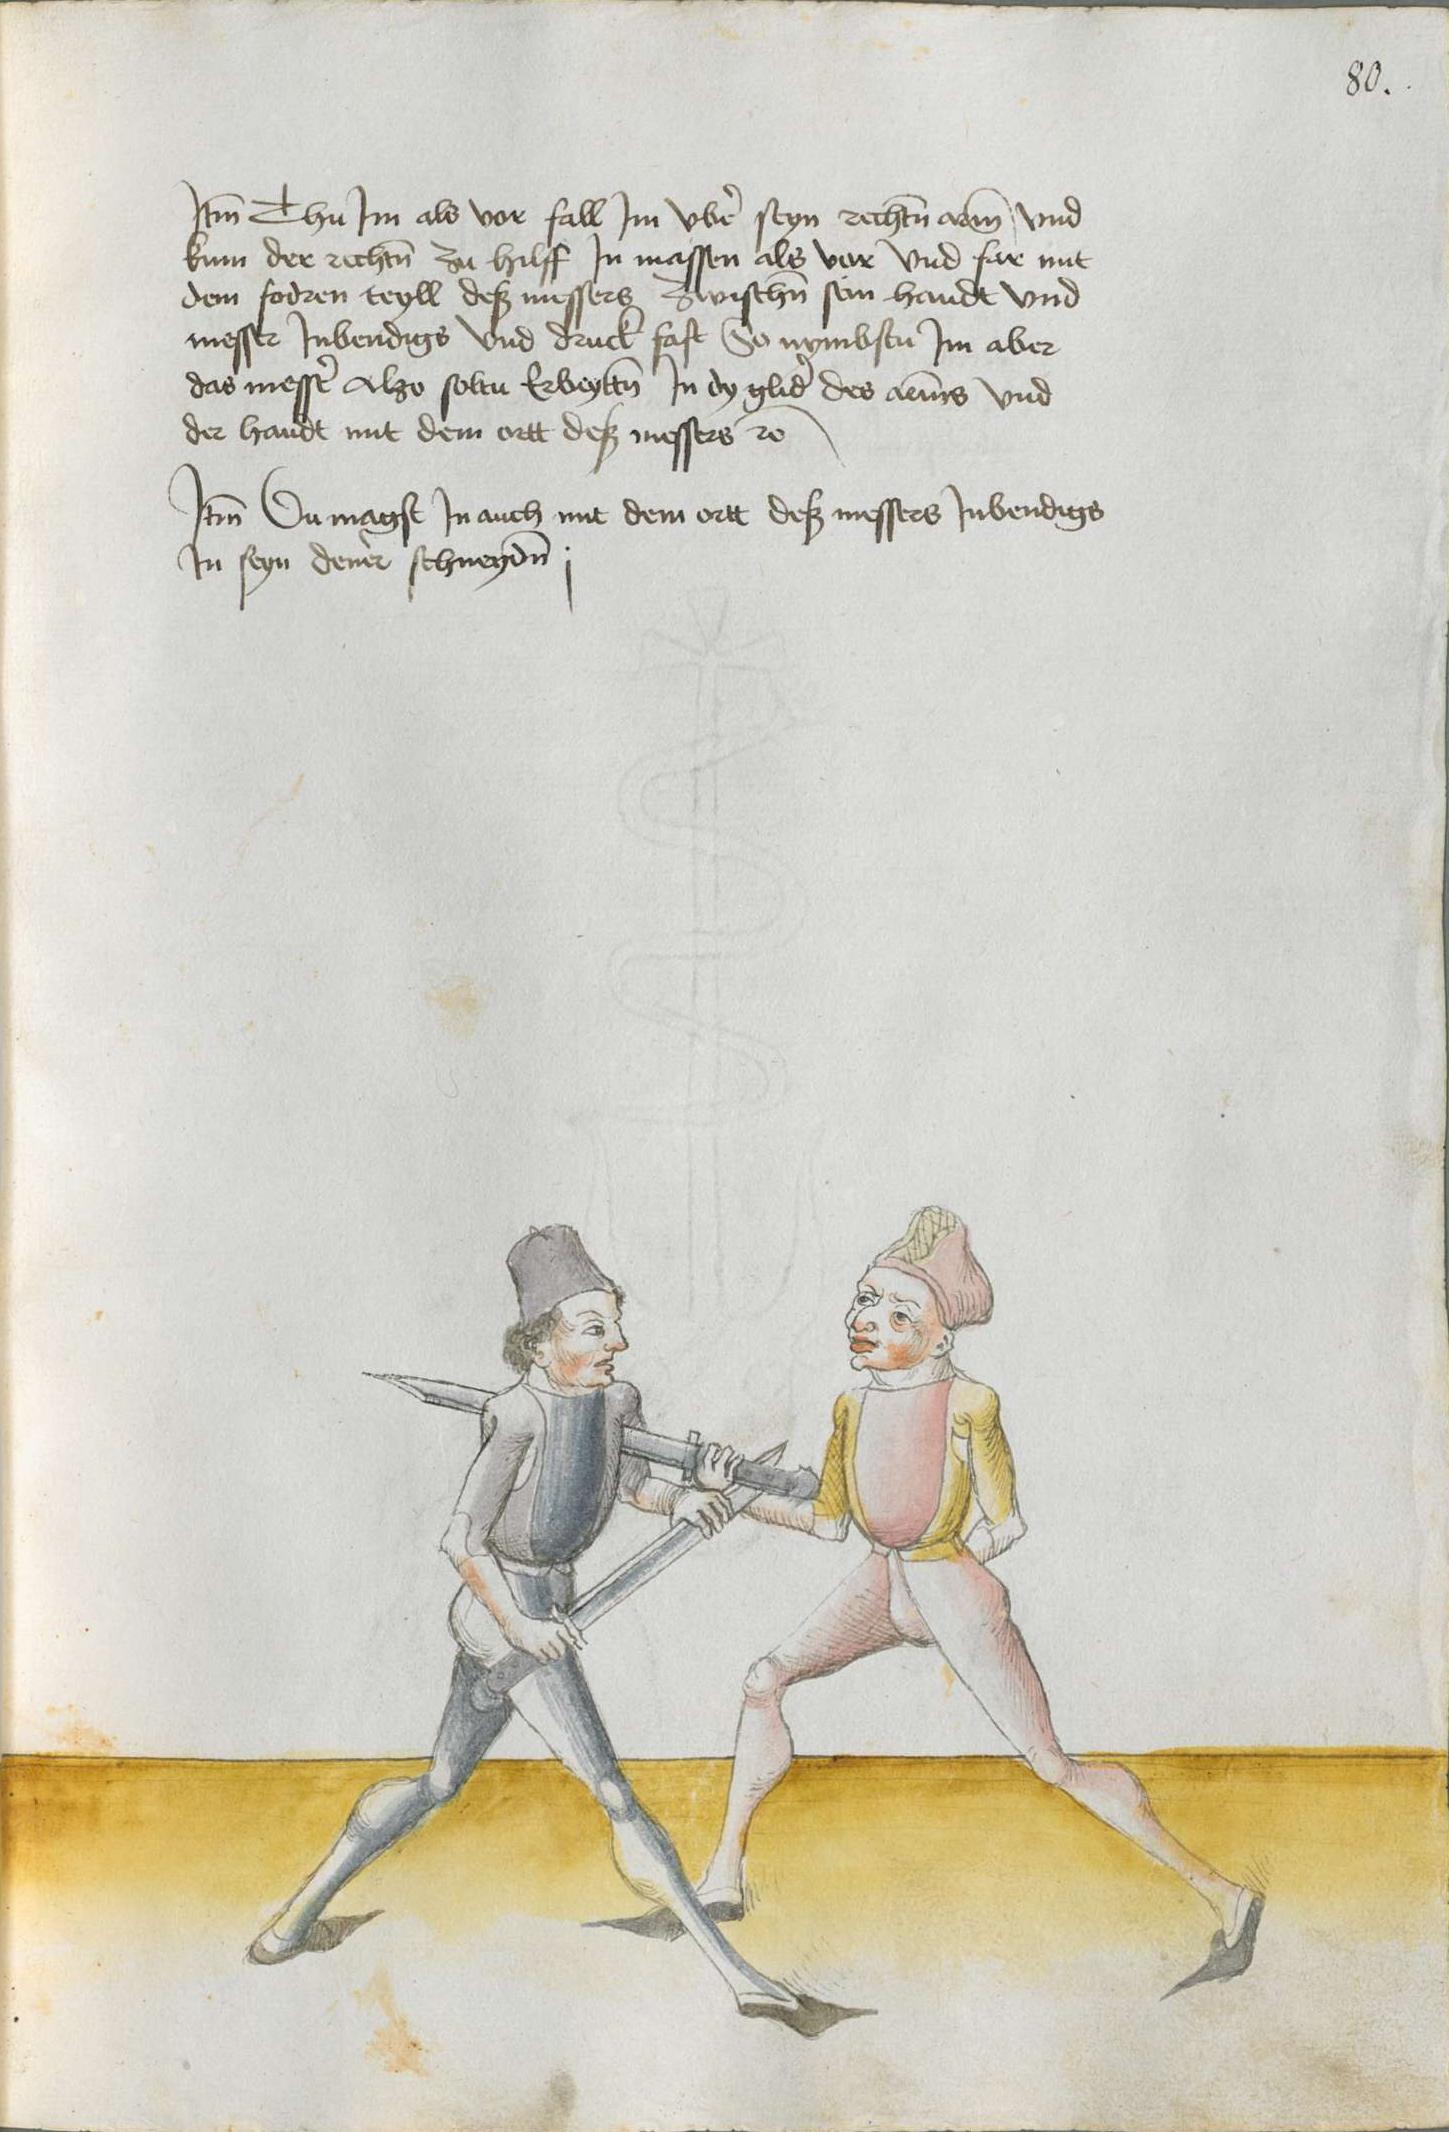 80.
Itm̄ Thu Im als vor fall Im vbe᷑ seyn rechtn̄ arm̄ Vnd
kum der rechtn̄ zu hilff In massen als vor Vnd far mit
dem fodren teyll deß messers zwischn̄ sein handt Vnd
messer Inbendigs Vnd druck fast So nymbstu Im aber
das messe᷑ Alzo soltu Erbeyttn̄ In dy glide᷑ des arm̄s Vnd
der handt mit dem ortt deß messers rc̄
Itm̄ Du magst In auch mit dem ortt deß messers Inbendigs
In seyn dener schneydn̄